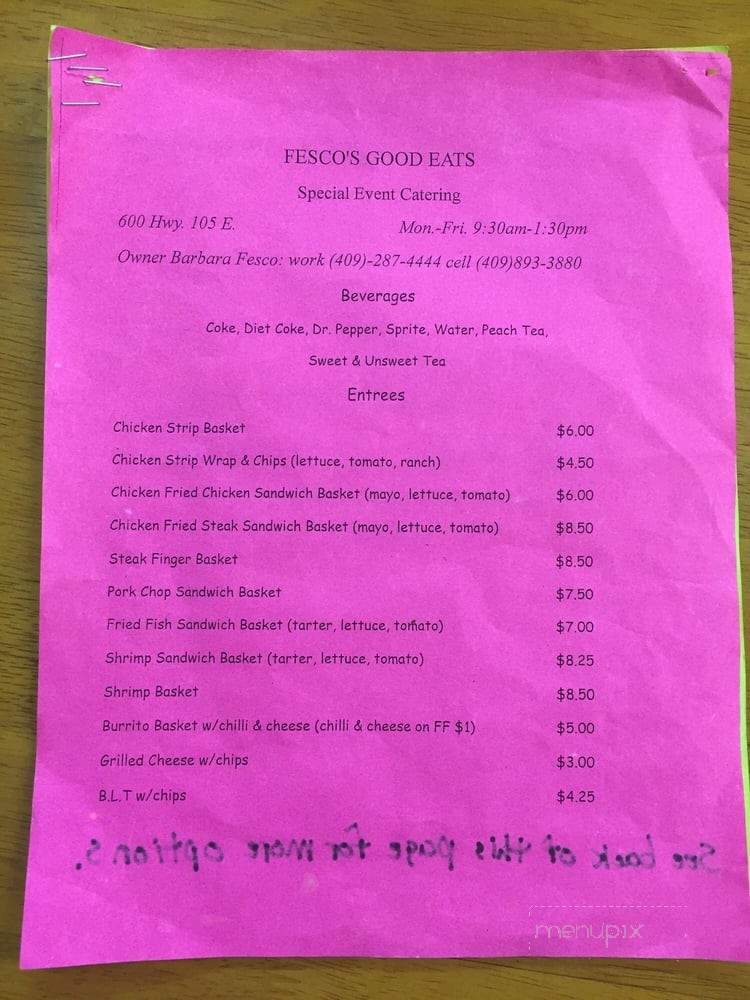 FESCO'S GOOD EATS
Special Event Catering
600 Hwy. 105 E. Mon.-Fri. 9:30am-1:30pm
Owner Barbara Fesco: work (409)-287-4444 cell (409)893-3880
Beverages
Coke, Diet Coke, Dr. Pepper, Sprite, Water, Peach Tea,
Sweet & Unsweet Tea
Entrees
Chicken Strip Basket $6.00
Chicken Strip Wrap & Chips (lettuce, tomato, ranch) $4.50
Chicken Fried Chicken Sandwich Basket (mayo, lettuce, tomato) $6.00
Chicken Fried Steak Sandwich Basket (mayo, lettuce, tomato) $8.50
Steak Finger Basket $8.50
Pork Chop Sandwich Basket $7.50
Fried Fish Sandwich Basket (tarter, lettuce, tomato) $7.00
Shrimp Sandwich Basket (tarter, lettuce, tomato) $8.25
Shrimp Basket $8.50
Burrito Basket w/chilli & cheese (chilli & cheese on FF $1) $5.00
Grilled Cheese w/chips $3.00
B.L.T w/chips $4.25
See back of this page for more options.
menupix